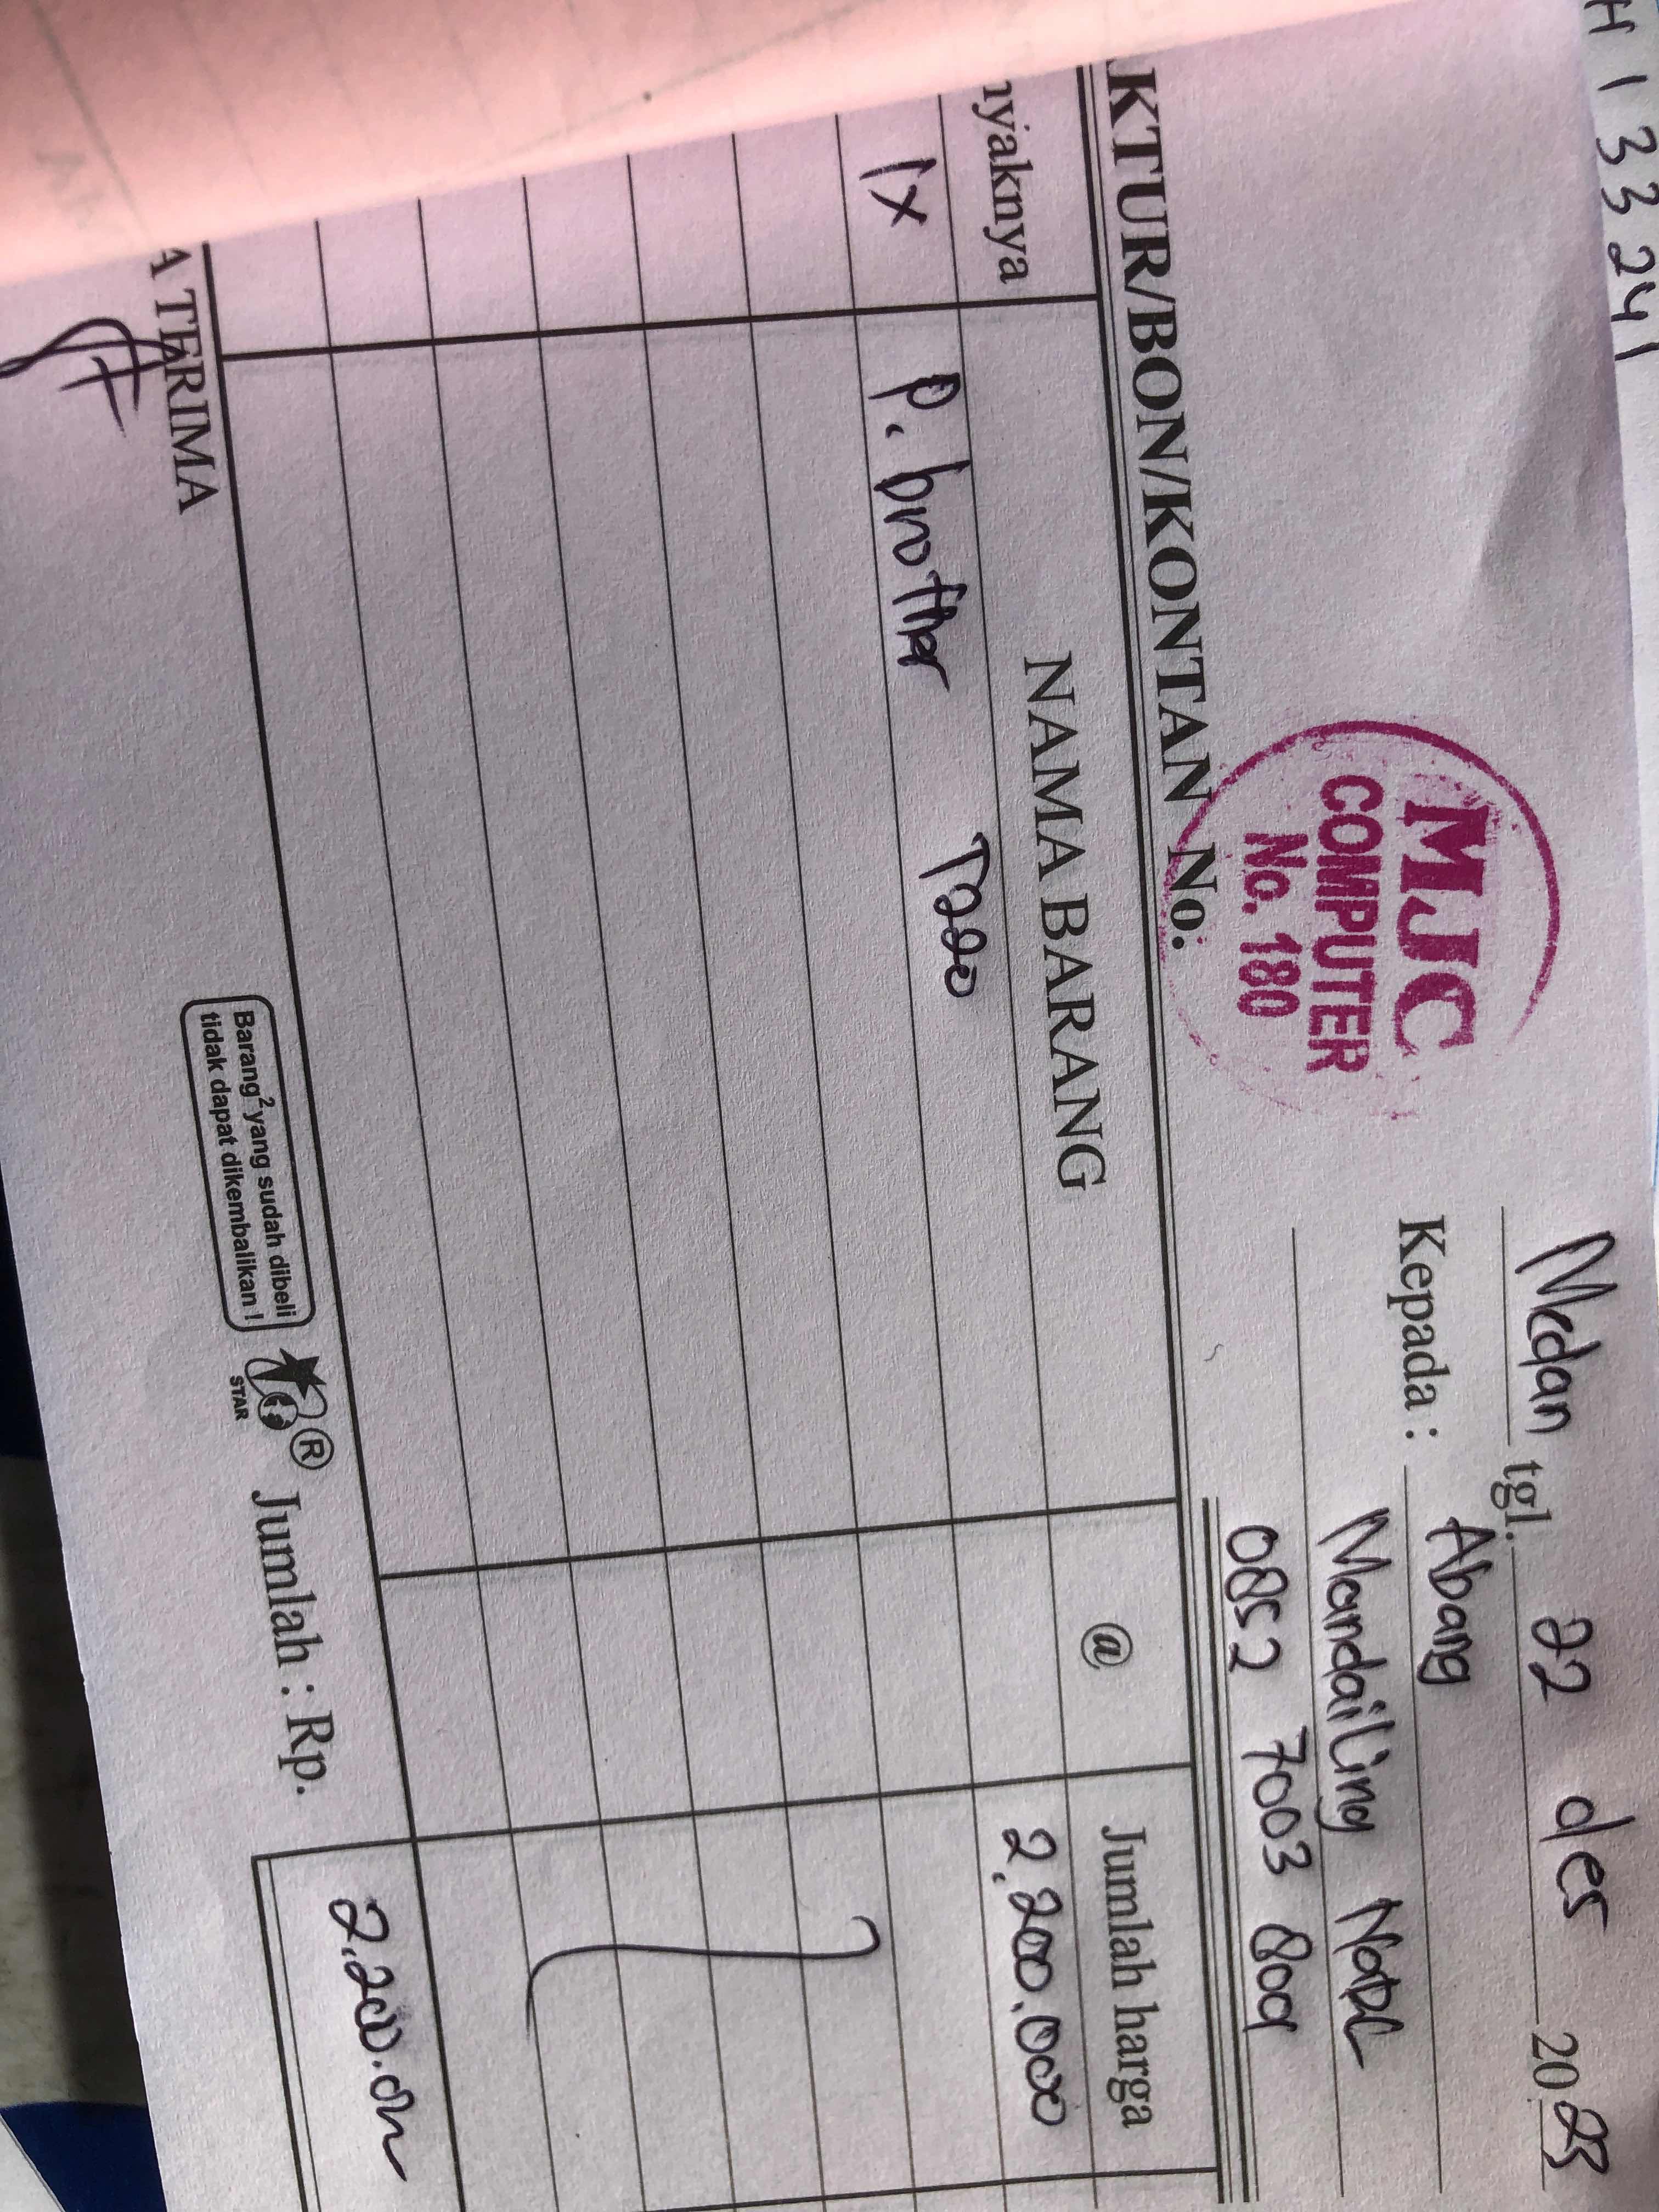 H 1 3 3 2 4 1
MJC
COMPUTER
No. 180
Medan tgl. 22 des 2023
Kepada : Abang
Mandailing Natal
0852 7003 809
KTUR/BON/KONTAN No.
nyaknya NAMA BARANG @ Jumlah harga
1x P. brother T220 2.200.000
A TERIMA
Barang² yang sudah dibeli
tidak dapat dikembalikan !
STAR
® Jumlah : Rp. 2.200.000